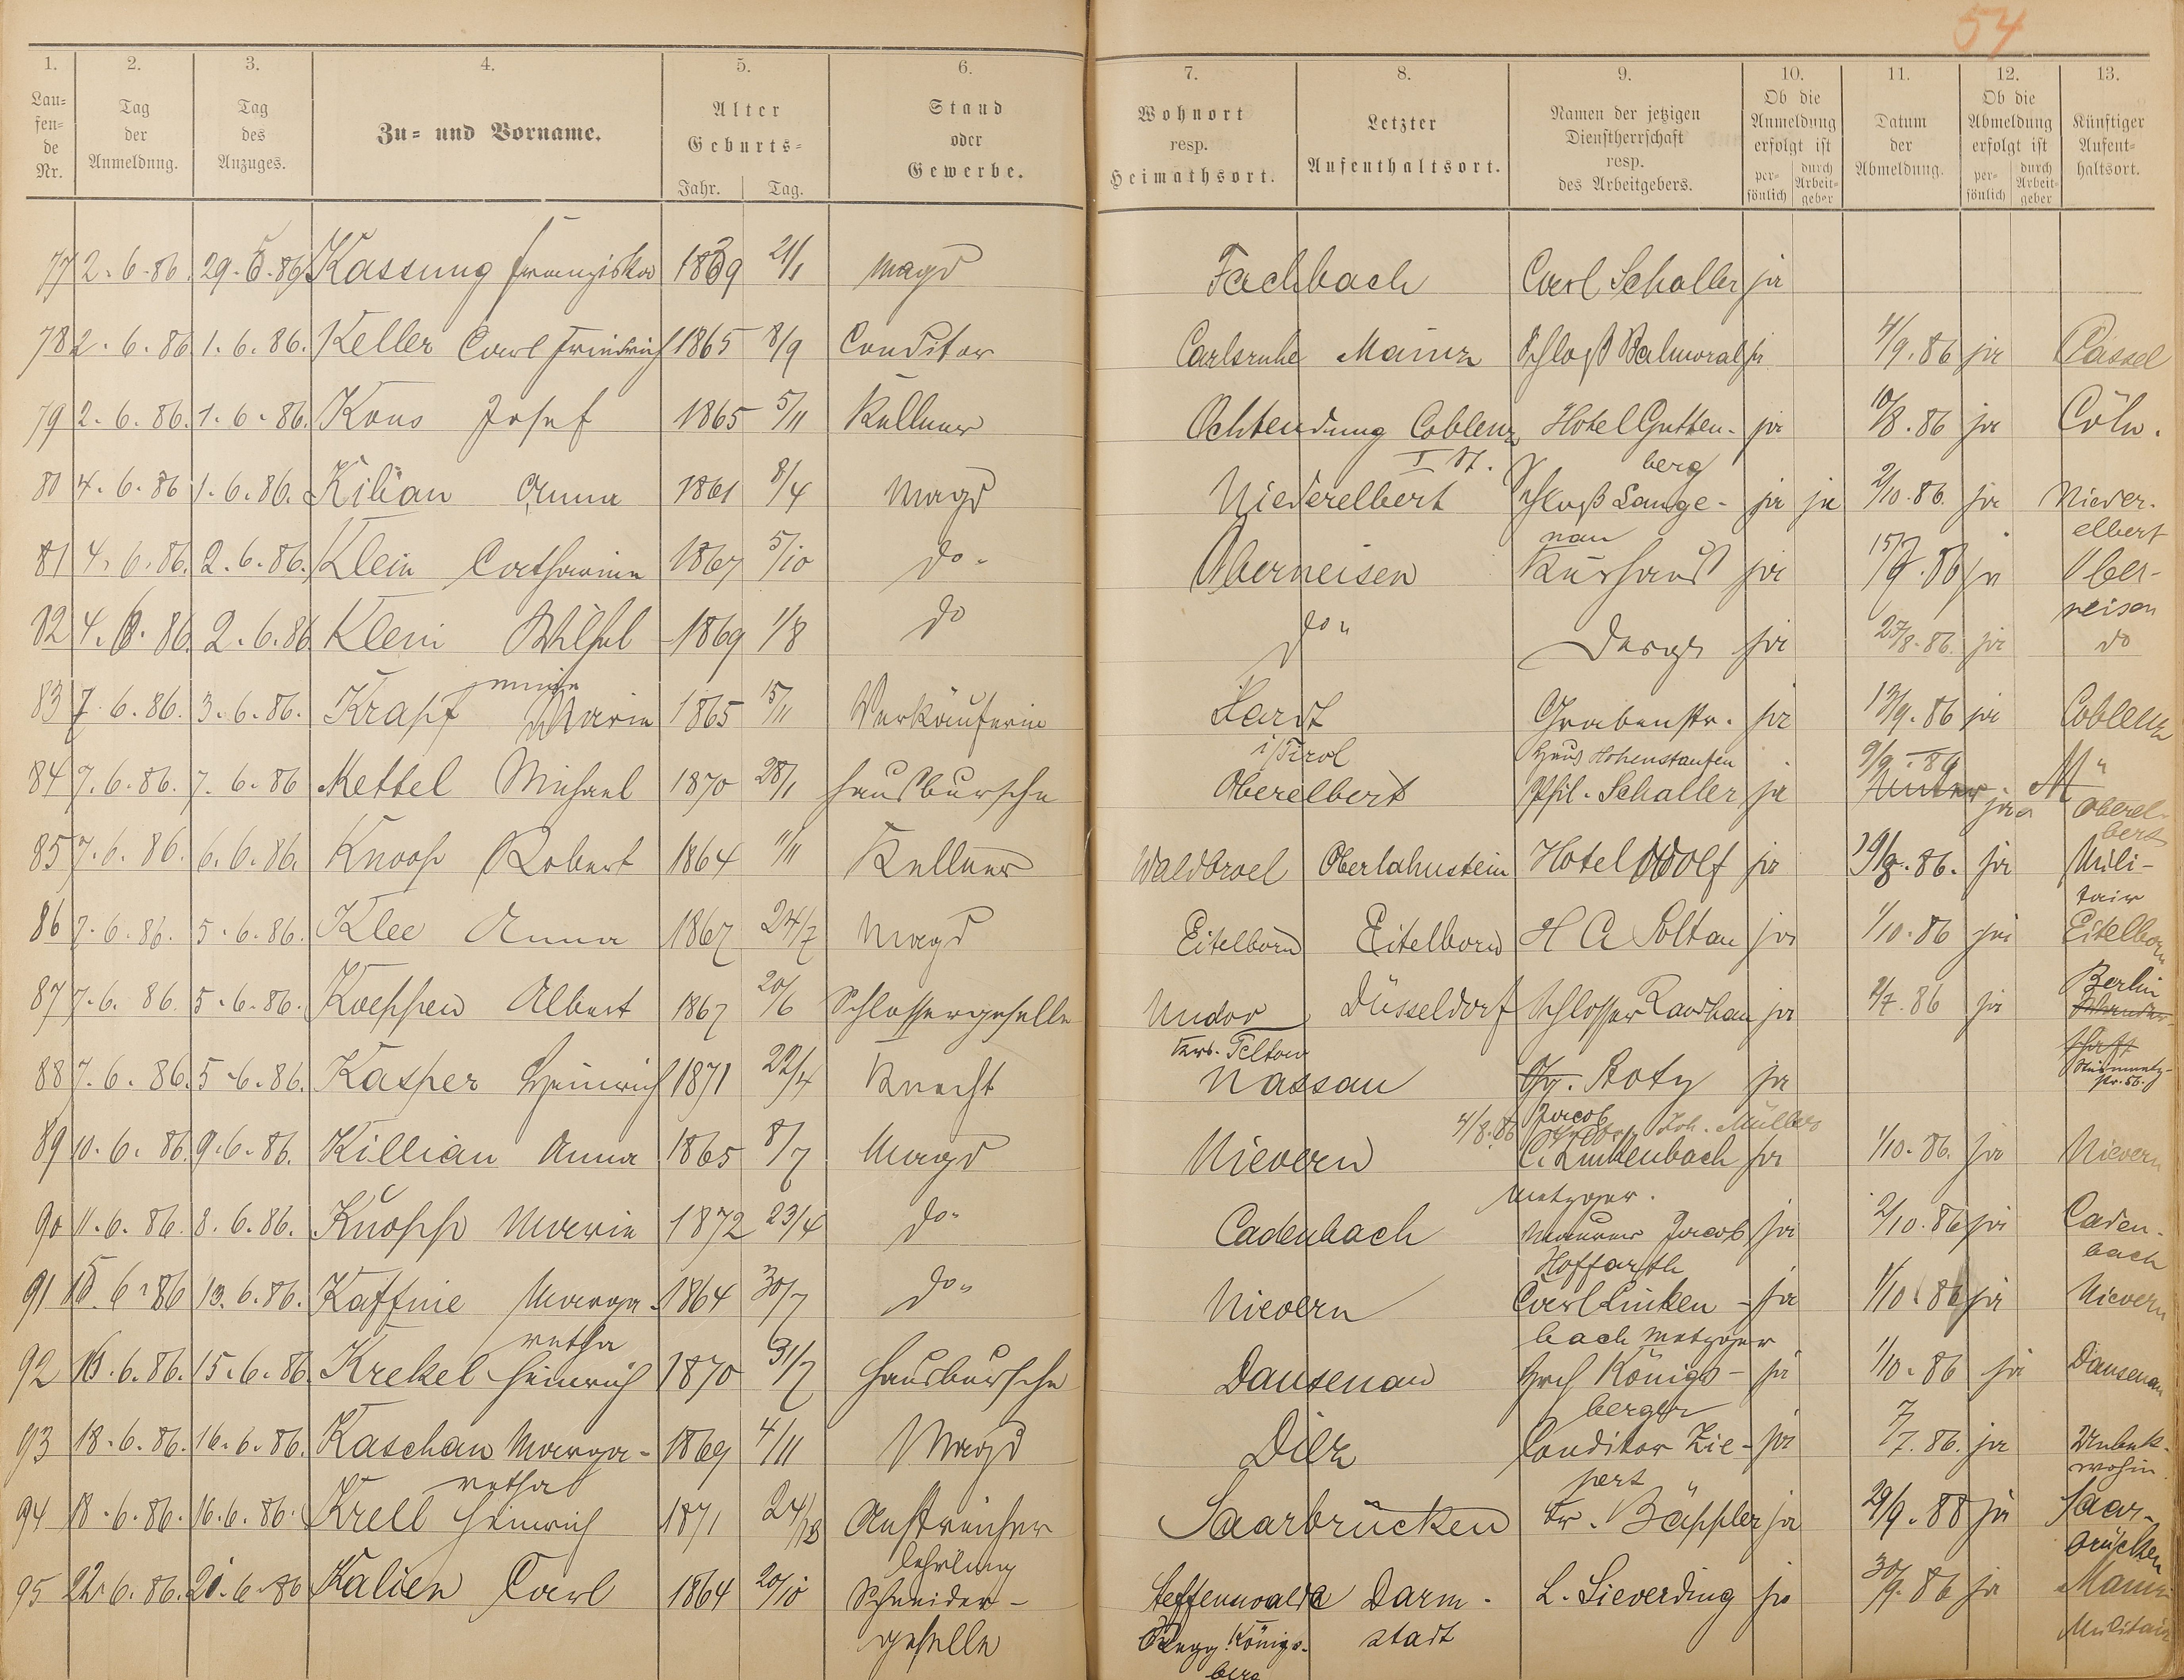 54
1. 2. 3. 4. 5. 6. 7. 8. 9. 10. 11. 12. 13.
Lau-
fen-
de
Nr.
Tag
der
Anmeldung.
Tag
des
Anzuges.
Zu- und Vorname.
Alter
Geburts-
Jahr. Tag.
Stand
oder
Gewerbe.
Wohnort
resp.
Heimathsort.
Letzter
Aufenthaltsort.
Namen der jetzigen
Dienstherrschaft
resp.
des Arbeitgebers.
Ob die
Anmeldung
erfolgt ist
per-
sönlich
durch
Arbeit-
geber
Datum
der
Abmeldung.
Ob die
Abmeldung
erfolgt ist
per-
sönlich
durch
Arbeit-
geber
Künftiger
Aufent-
haltsort.
77 2. 6. 86. 29. 5. 86 Kassung Franziska 1869 21/1 Magd Fachbach Carl Schaller ja
78 2. 6. 86 1. 6. 86. Keller Carl Friedrich 1865 8/9 Conditor Carlsruhe Mainz Schloß Balmoral ja 4/9. 86 ja Cassel
79 2. 6. 86. 1. 6. 86. Kons Josef 1865 5/11 Kellner Ochtendung Coblenz Hotel Gutten- ja 10/8. 86 ja Cöln.
berg
80 4. 6. 86 1. 6. 86. Kilian Anna 1861 8/4 Magd Niederelbert Schloß Lange- ja ja 2/10. 86. ja Nieder-
nau elbert
81 4. 6. 86. 2. 6. 86. Klein Catharina 1867 5/10 do. Oberneisen Kurhaus ja 15/9. 86 ja Ober-
neisen
82 4. 6. 86. 2. 6. 86 Klein Wilhel- 1869 1/8 do do " Dasgl ja 27/8. 86. ja do
mine
83 7. 6. 86. 3. 6. 86. Krapf Maria 1865 15/11 Verkäuferin Hard Grabenstr. ja 13/9. 86 ja Coblenz
i/Tirol Haus Hohenstaufen
84 7. 6. 86. 7. 6. 86 Kettel Michael 1870 28/1 Hausbursche Oberelbert Phil. Schaller ja 9/9 86 ja Oberel-
bert
85 7. 6. 86. 6. 6. 86. Knoop Robert 1864 11/11 Kellner Waldbroel Oberlahnstein Hotel Wolf ja 19/8. 86. ja Mili-
tair
86 7. 6. 86. 5. 6. 86. Klee Anna 1867 24/7 Magd Eitelborn Eitelborn H A Soltau ja 1/10. 86 ja Eitelborn
87 7. 6. 86. 5. 6. 86. Koeppen Albert 1867 20/6 Schlossergeselle Düsseldorf Schlosser ja 2/7. 86 ja Berlin
Teltow
88 7. 6. 86. 5. 6. 86. Kasper Heinrich 1871 22/4 Knecht Nassau Roty ja
4/8. 86 Jacob Joh. Müller
89 10. 6. 86. 9. 6. 86. Killian Anna 1865 8/7 Magd Nievern C. Linkenbach ja 1/10. 86. ja Nievern
Metzger.
90 11. 6. 86. 8. 6. 86. Knopp Maria 1872 23/4 do " Cadenbach Maurer Jacob ja 2/10. 86 ja Caden-
Hoffarth bach
91 15. 6. 86 13. 6. 86. Kaffine Marga- 1864 30/7 do " Nievern Carl Linken- ja 1/10. 86 ja Nievern
retha bach Metzger
92 16. 6. 86. 15. 6. 86 Krekel Heinrich 1870 31/7 Hausbursche Dausenau Hch Königs- ja 1/10. 86 ja Dausenau
berger
93 18. 6. 86. 16. 6. 86. Kaschau Marga- 1869 4/11 Magd Diez Conditor Zie- ja 7/7. 86. ja Unbek.
retha pert wohin.
94 18. 6. 86. 16. 6. 86. Krell Heinrich 1871 24/12 Anstreicher Saarbrücken Fr. Bäppler ja 29/9. 88 ja Saar-
lehrling brücken
95 22. 6. 86. 21. 6. 86 Kalien Carl 1864 20/10 Schneider- Steffenwalde Darm- L. Sieverding ja 30/9. 86 ja
geselle Königs- stadt Militair
berg